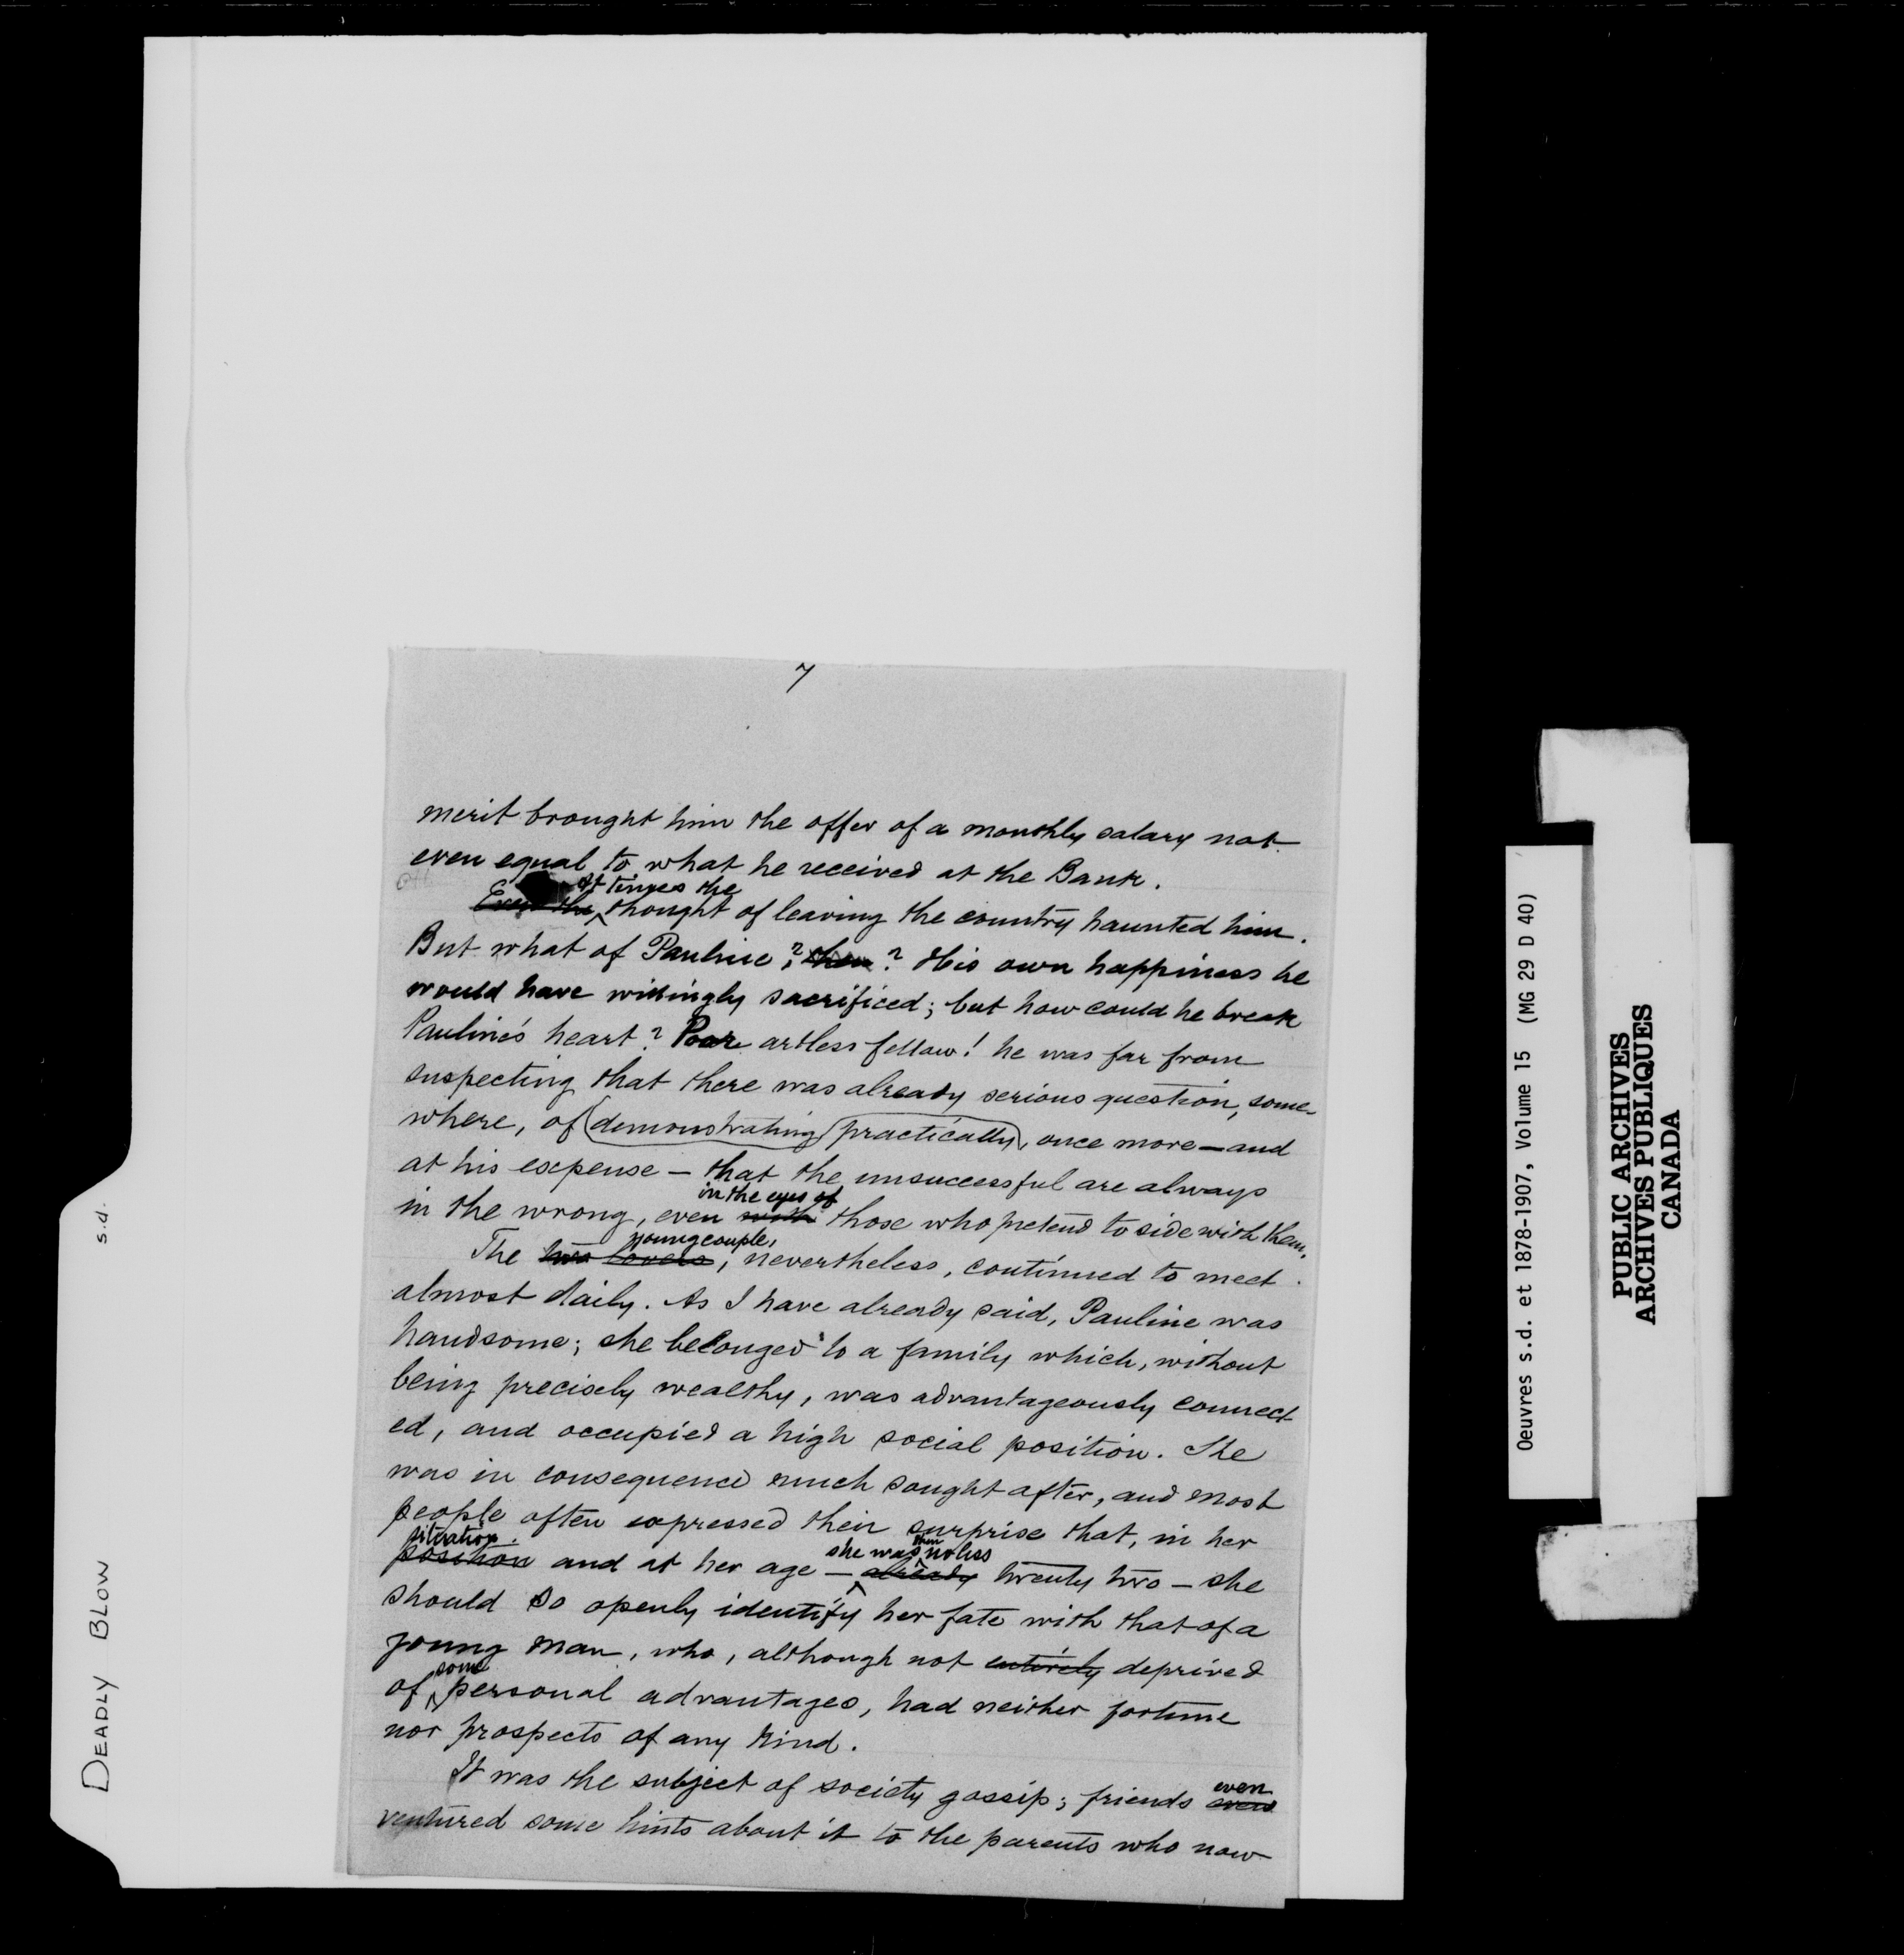 7
merit brought him the offer of a monthly salary not
even equal to what he received at the Bank.
At times the
Even the thought of leaving the country haunted him.
But what of Pauline? then? His own happiness he
would have willingly sacrificed; but how could he break
Pauline's heart? Poor artless fellow! he was far from
suspecting that there was already serious question, some-
where, of demonstrating practically, once more — and
at his expense — that the unsuccessful are always
in the eyes of
in the wrong, even with those who pretend to side with them.
young couple,
The two lovers, nevertheless, continued to meet
almost daily. As I have already said, Pauline was
handsome; she belonged to a family which, without
being precisely wealthy, was advantageously connect-
ed, and occupied a high social position. She
was in consequence much sought after, and most
people often expressed their surprise that, in her
situation then
she was no less
position and at her age — already twenty two — she
should so openly identify her fate with that of a
young man, who, although not entirely deprived
some
of personal advantages, had neither fortune
nor prospects of any kind.
even
It was the subject of society gossip; friends even
ventured some hints about it to the parents who now
DEADLY BLOW s.d.
Oeuvres s.d. et 1878-1907, Volume 15 (MG 29 D 40)
PUBLIC ARCHIVES
ARCHIVES PUBLIQUES
CANADA